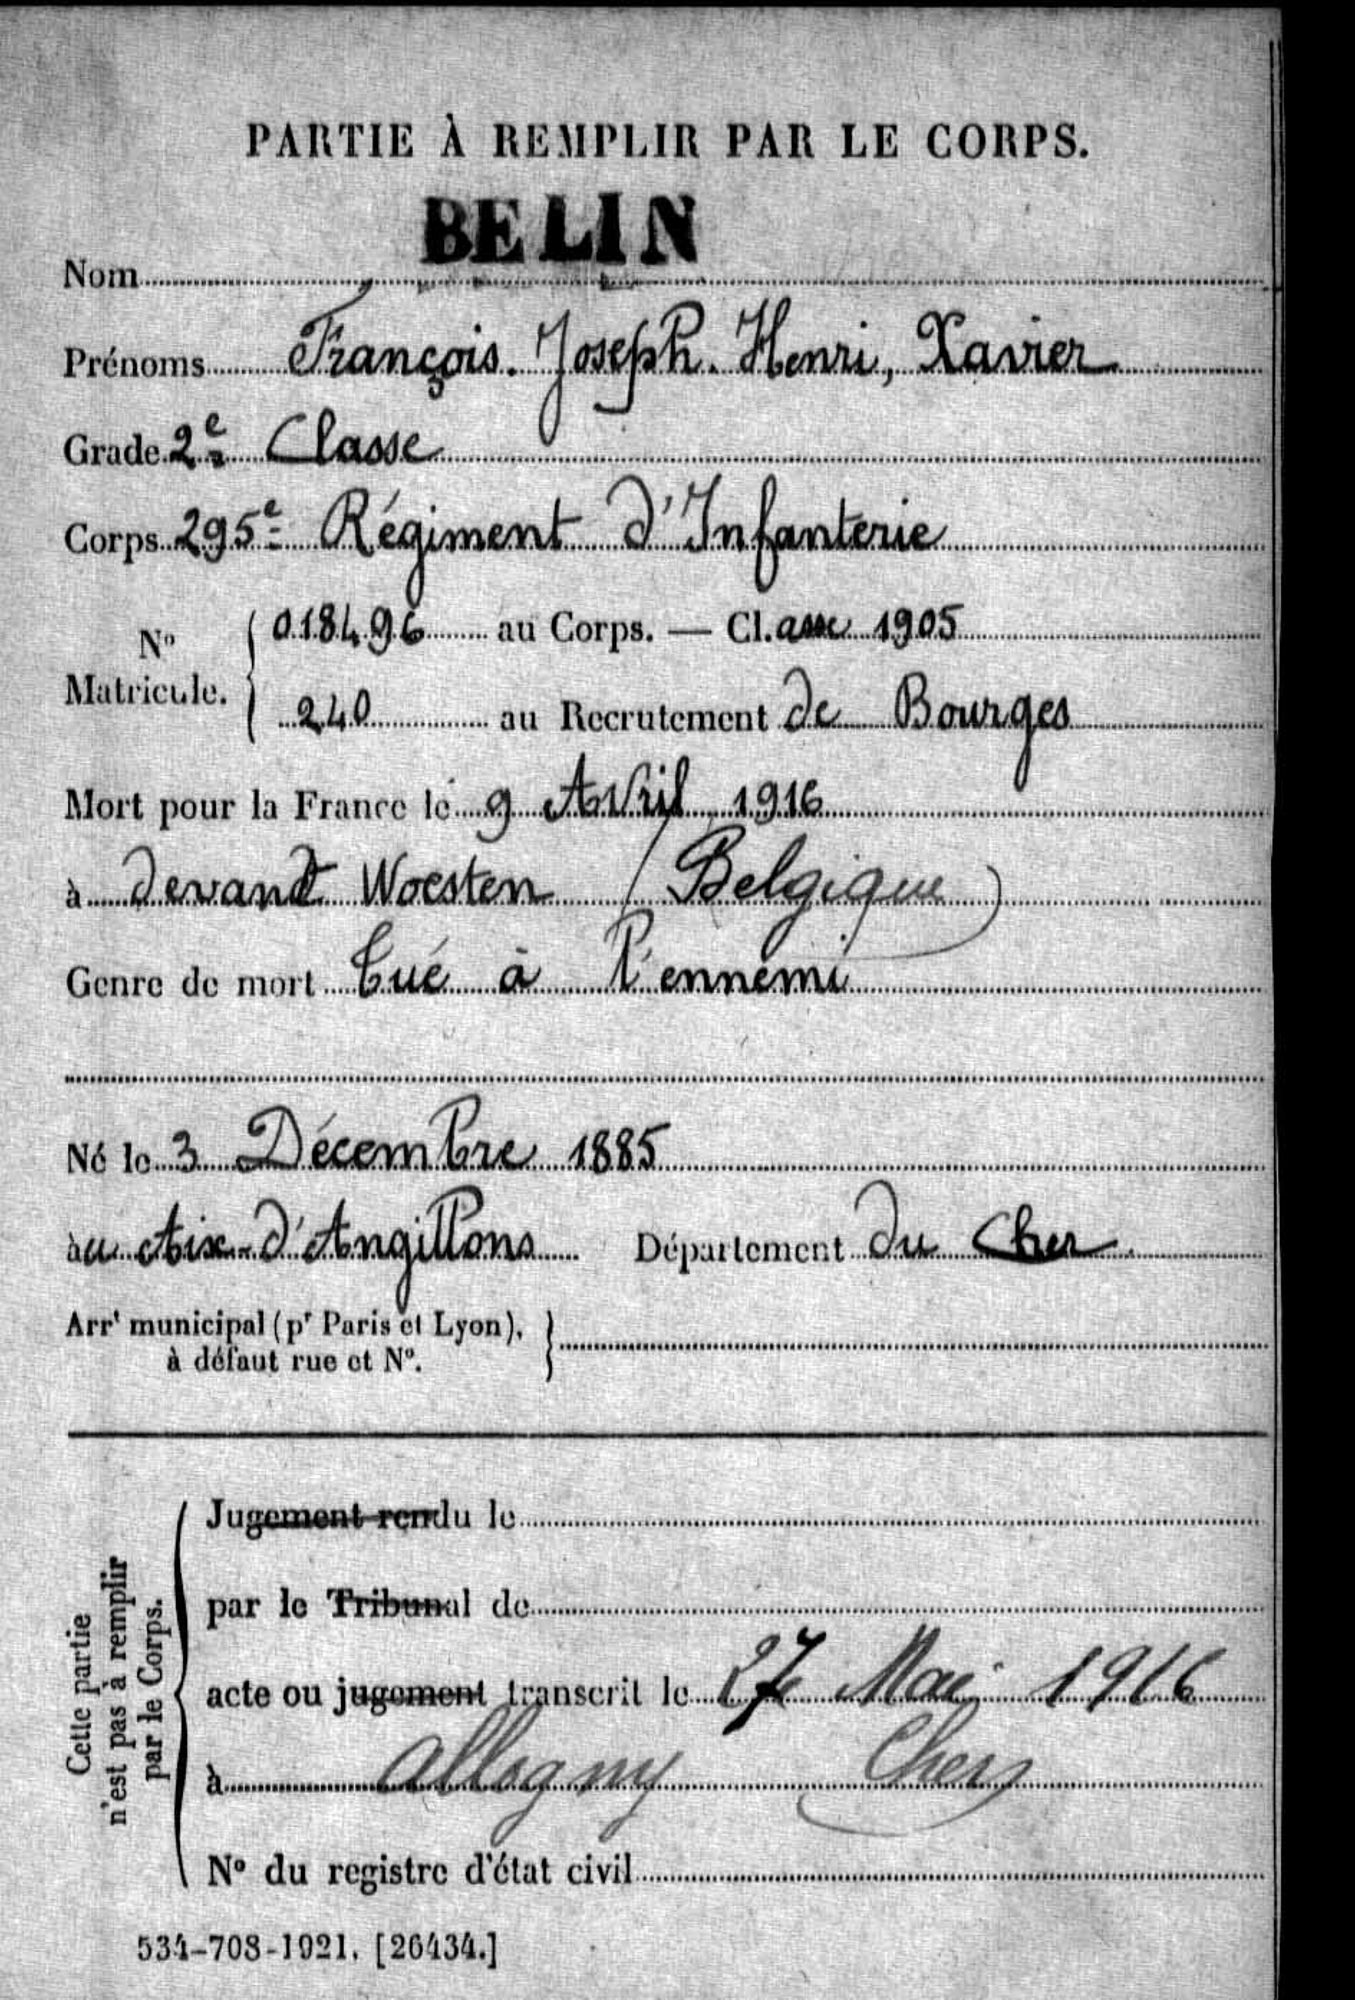 PARTIE À REMPLIR PAR LE CORPS.
BELIN
Nom
Prénoms François. Joseph. Henri, Xavier
Grade 2e Classe
Corps 295e Régiment d'Infanterie
No Matricule. { 018496 au Corps. — Cl.asse 1905
240 au Recrutement de Bourges
Mort pour la France le 9 Avril 1916
à devant Woesten (Belgique)
Genre de mort Tué à l'ennemi
Né le 3 Décembre 1885
au Aix-d'Angillons Département du Cher
Arrt municipal (pr Paris et Lyon),
à défaut rue et No.
Cette partie
n'est pas à remplir
par le Corps.
Jugement rendu le
par le Tribunal de
acte ou jugement transcrit le 27 Mai 1916
à Allogny Cher
No du registre d'état civil
534-708-1921. [26434.]